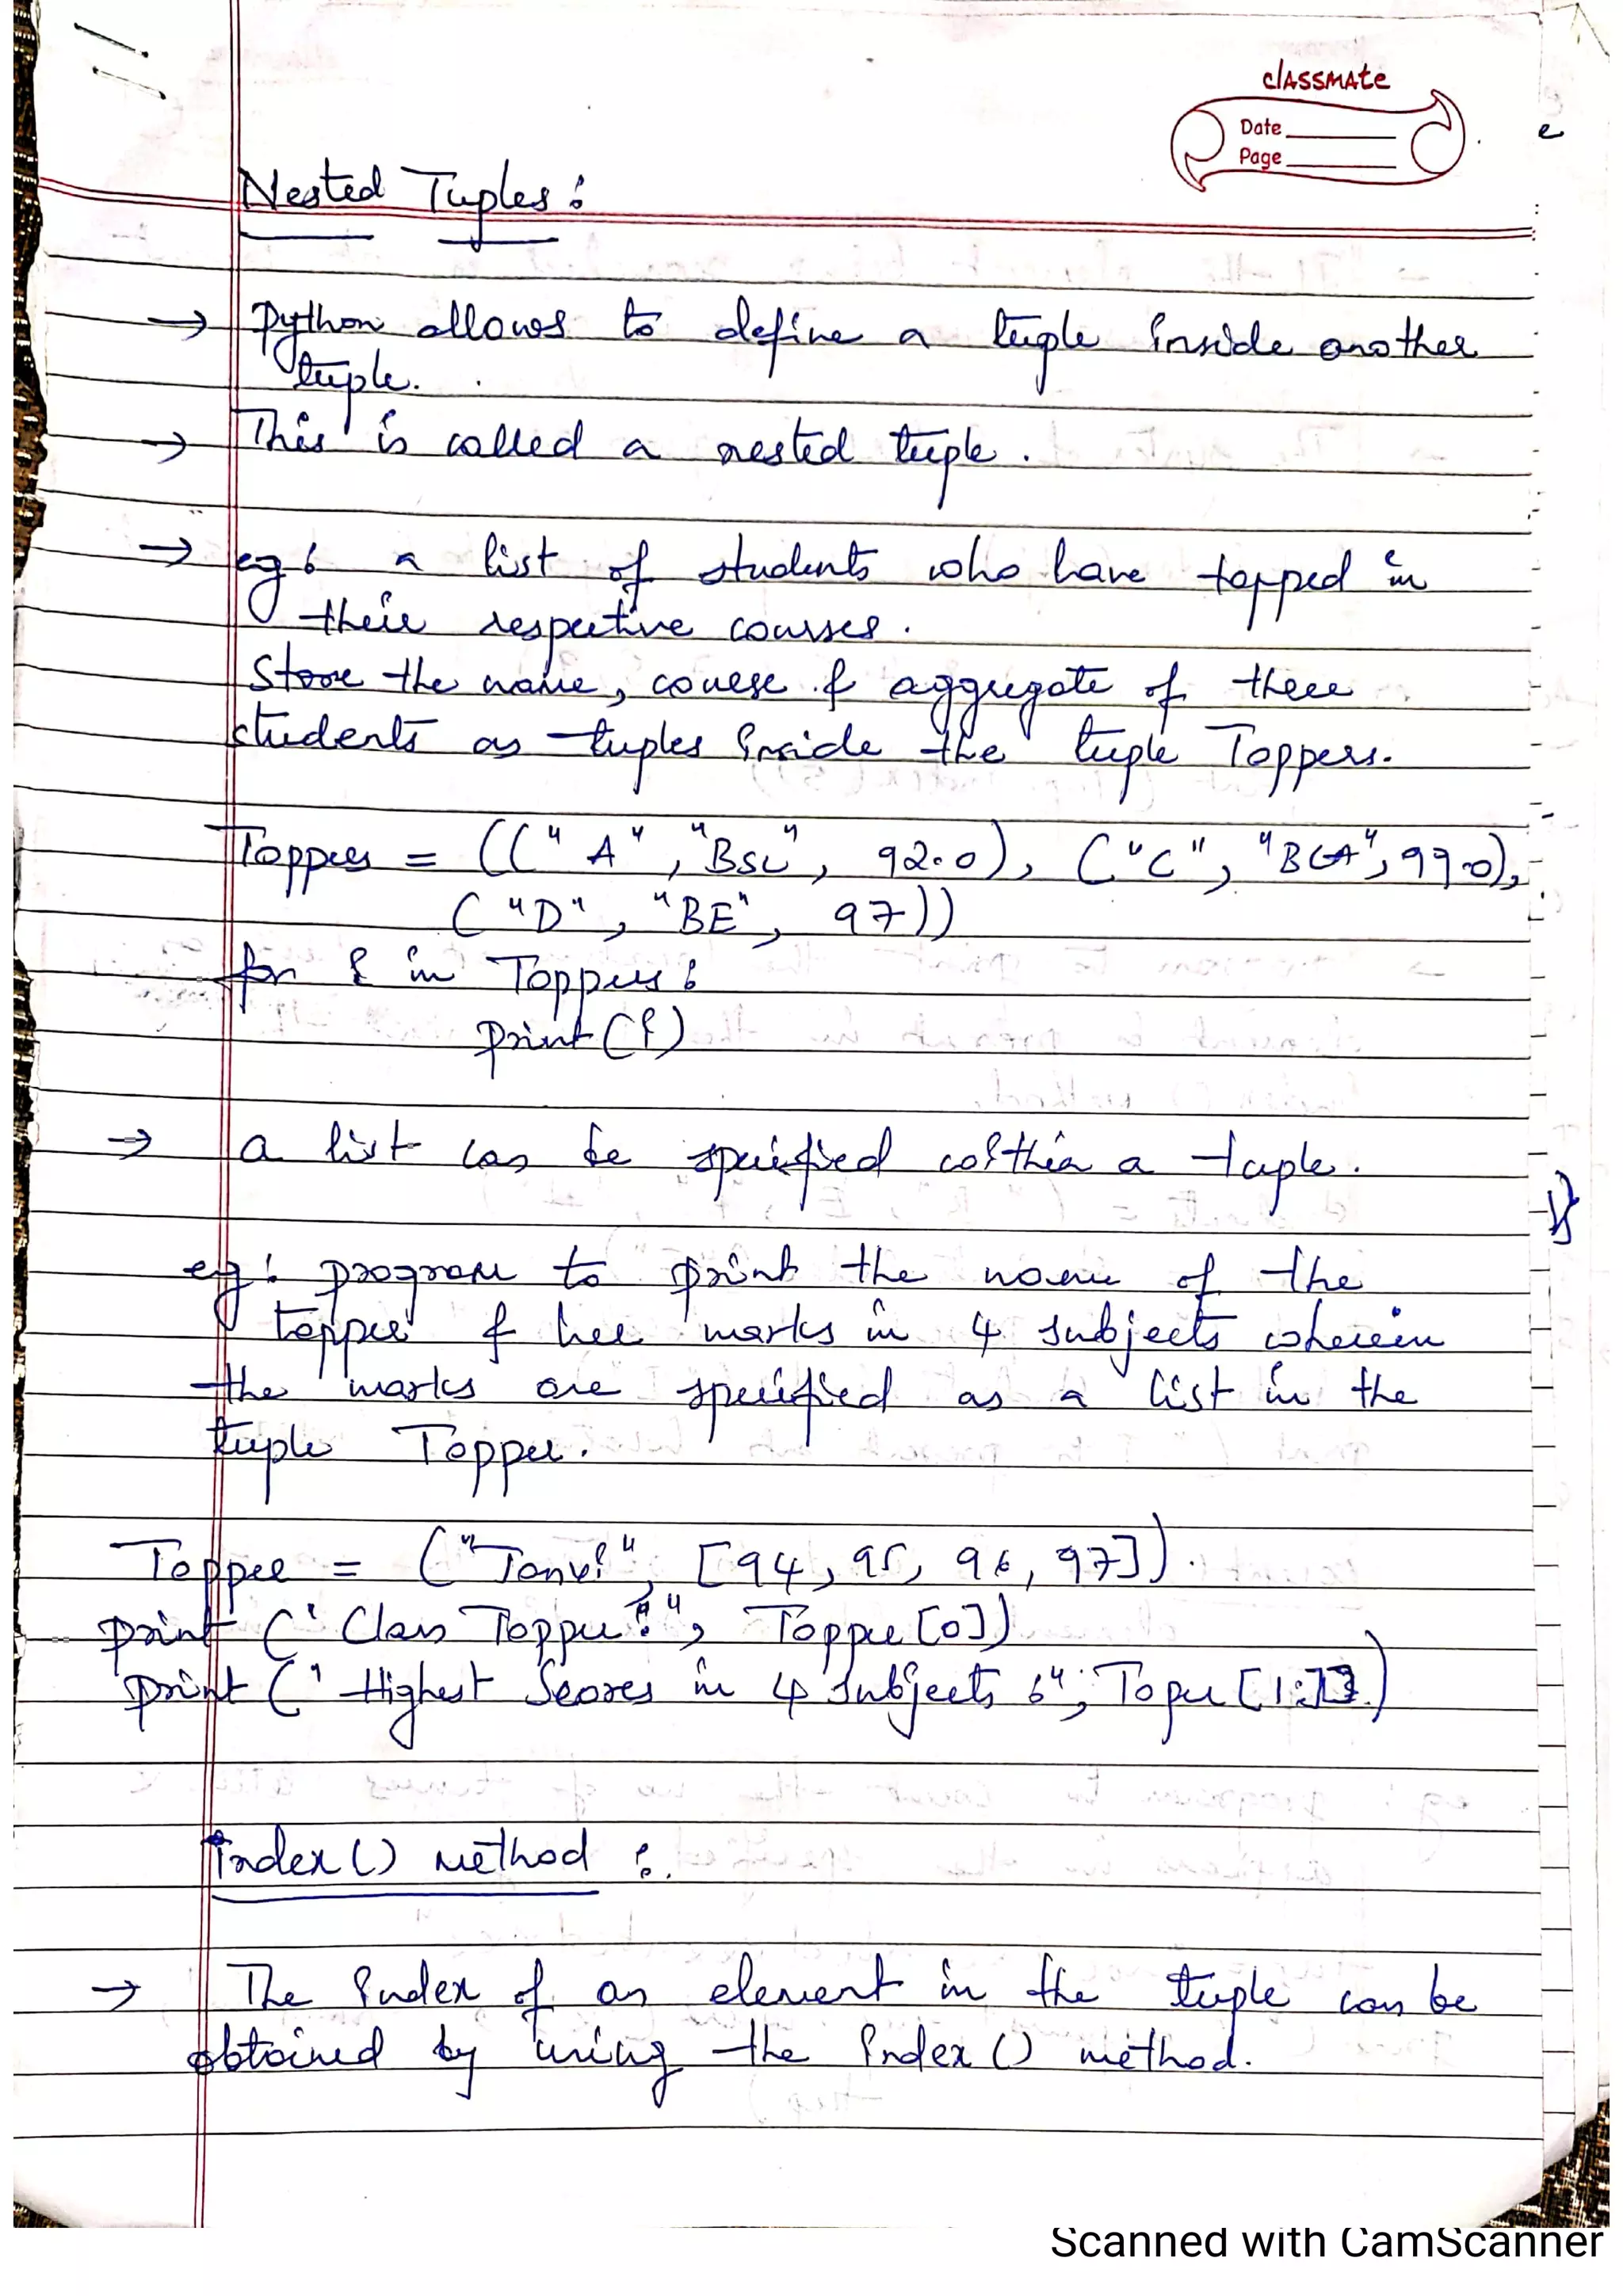 classmate
Date
Page
Nested Tuples :
→ Python allows to define a tuple inside another
tuple.
→ This is called a nested tuple.
→ eg : a list of students who have topped in
their respective courses.
Store the name, course & aggregate of three
students as tuples inside the tuple Toppers.
Toppers = (("A", "BSC", 92.0), ("C", "BCA", 99.0),
("D", "BE", 97))
for i in Toppers :
print (i)
→ a list can be specified within a tuple.
eg : program to print the name of the
topper & her marks in 4 subjects wherein
the marks are specified as a list in the
tuple Topper.
Topper = ("Tanvi", [94, 95, 96, 97]).
print (" Class Topper : ", Topper [0])
print (" Highest Scores in 4 subjects : ", Toper [1:])
index () method :
→ The index of an element in the tuple can be
obtained by using the index () method.
Scanned with CamScanner